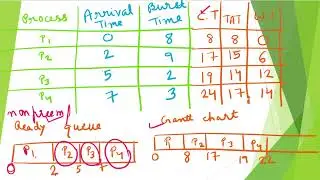 Process Arrival Time Burst Time C.T TAT W.T
P1 0 8 8 8 0
P2 2 9 17 15 6
P3 5 2 19 14 12
P4 7 3 24 17 14
nonpreem
Ready queue Grantt chart
P1 P2 P3 P4 P1 P2 P3 P4
0 2 5 7 0 8 17 19 22